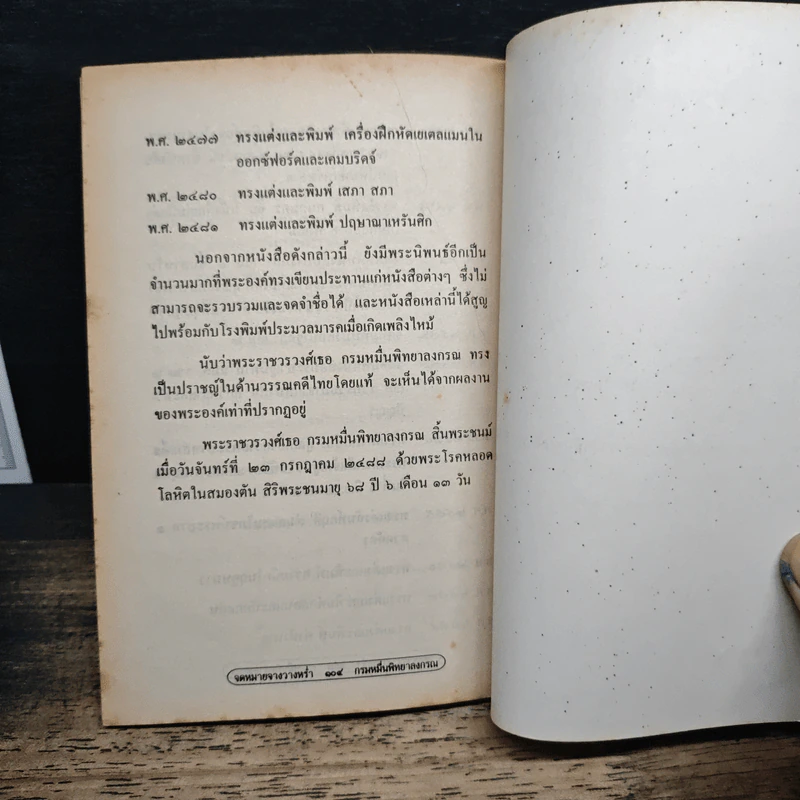 พ.ศ. ๒๔๗๗ ทรงแต่งและพิมพ์ เครื่องฝึกหัดเยเตลแมนใน
ออกซ์ฟอร์ดและเคมบริดจ์
พ.ศ. ๒๔๘๐ ทรงแต่งและพิมพ์ เสภา สภา
พ.ศ. ๒๔๘๑ ทรงแต่งและพิมพ์ ปฤษาณาเหรันศิก
นอกจากหนังสือดังกล่าวนี้ ยังมีพระนิพนธ์อีกเป็น
จำนวนมากที่พระองค์ทรงเขียนประทานแก่หนังสือต่างๆ ซึ่งไม่
สามารถจะรวบรวมและจดจำชื่อได้ และหนังสือเหล่านี้ได้สูญ
ไปพร้อมกับโรงพิมพ์ประมวลมารคเมื่อเกิดเพลิงไหม้
นับว่าพระราชวรวงศ์เธอ กรมหมื่นพิทยาลงกรณ ทรง
เป็นปราชญ์ในด้านวรรณคดีไทยโดยแท้ จะเห็นได้จากผลงาน
ของพระองค์เท่าที่ปรากฏอยู่
พระราชวรวงศ์เธอ กรมหมื่นพิทยาลงกรณ สิ้นพระชนม์
เมื่อวันจันทร์ที่ ๒๓ กรกฎาคม ๒๔๘๘ ด้วยพระโรคหลอด
โลหิตในสมองตัน สิริพระชนมายุ ๖๘ ปี ๖ เดือน ๑๓ วัน
จดหมายจางวางหร่ำ ๑๐๔ กรมหมื่นพิทยาลงกรณ